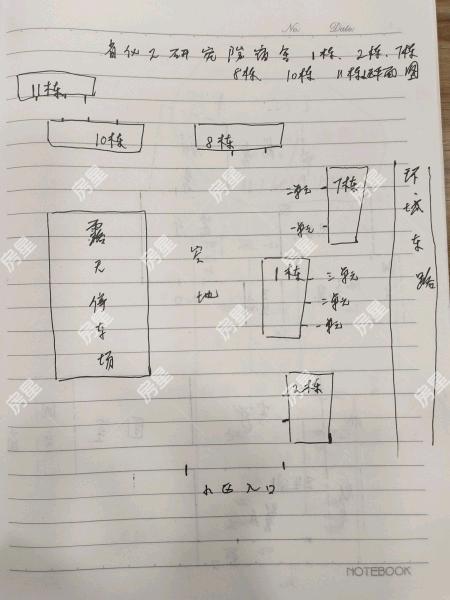 No.
Date.
省化工研究院宿舍 1栋、2栋、7栋
8栋 10栋 11栋 平面图
11栋
10栋
8栋
7栋
二单元
一单元
环城东路
露天停车场
空地
1栋
三单元
二单元
一单元
2栋
小区入口
NOTEBOOK
房星
房星
房星
房星
房星
房星
房星
房星
房星